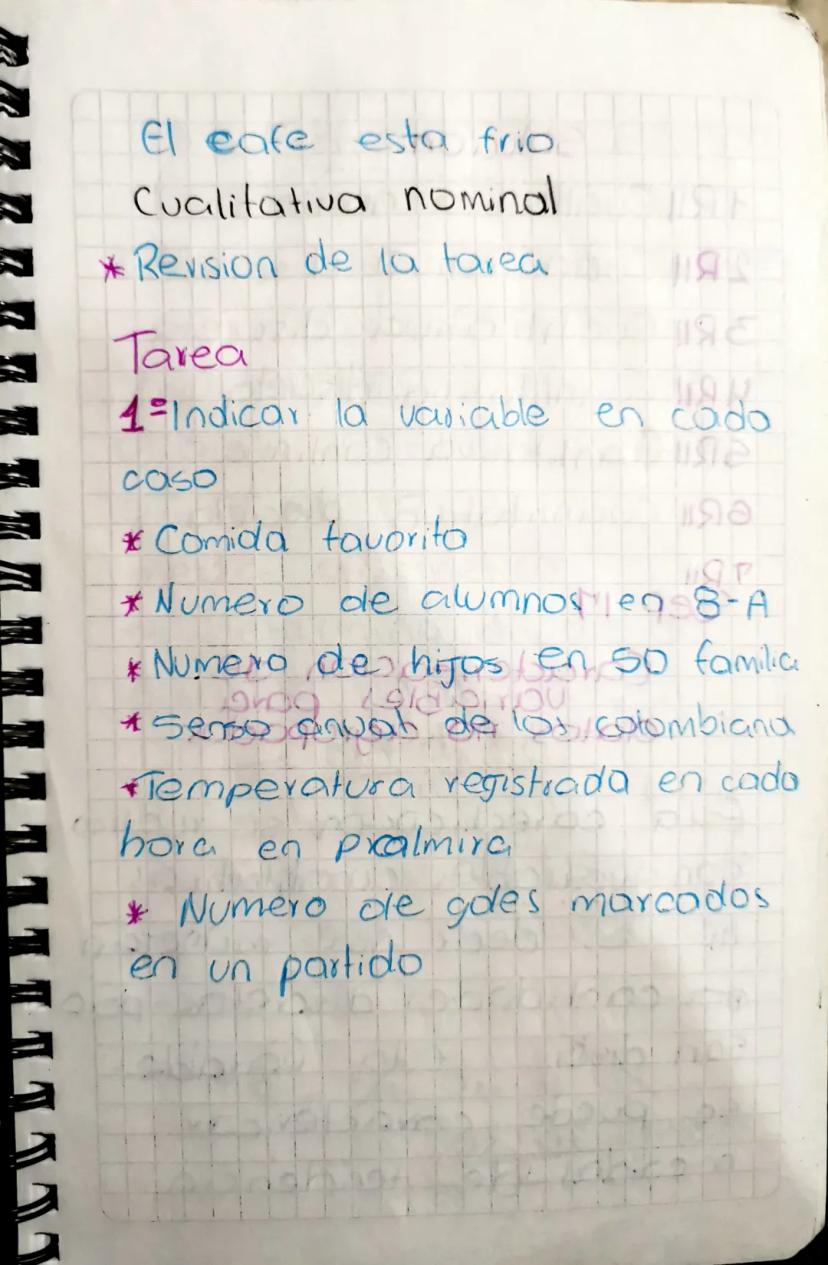 El cafe esta frio
Cualitativa nominal
* Revision de la tarea
Tarea
1º Indicar la variable en cado
caso
* Comida favorito
* Numero de alumnos en 8-A
* Numero de hijos en 50 familia
* senso anual de los colombiana
* Temperatura registrada en cado
hora en palmira
* Numero de goles marcados
en un partido